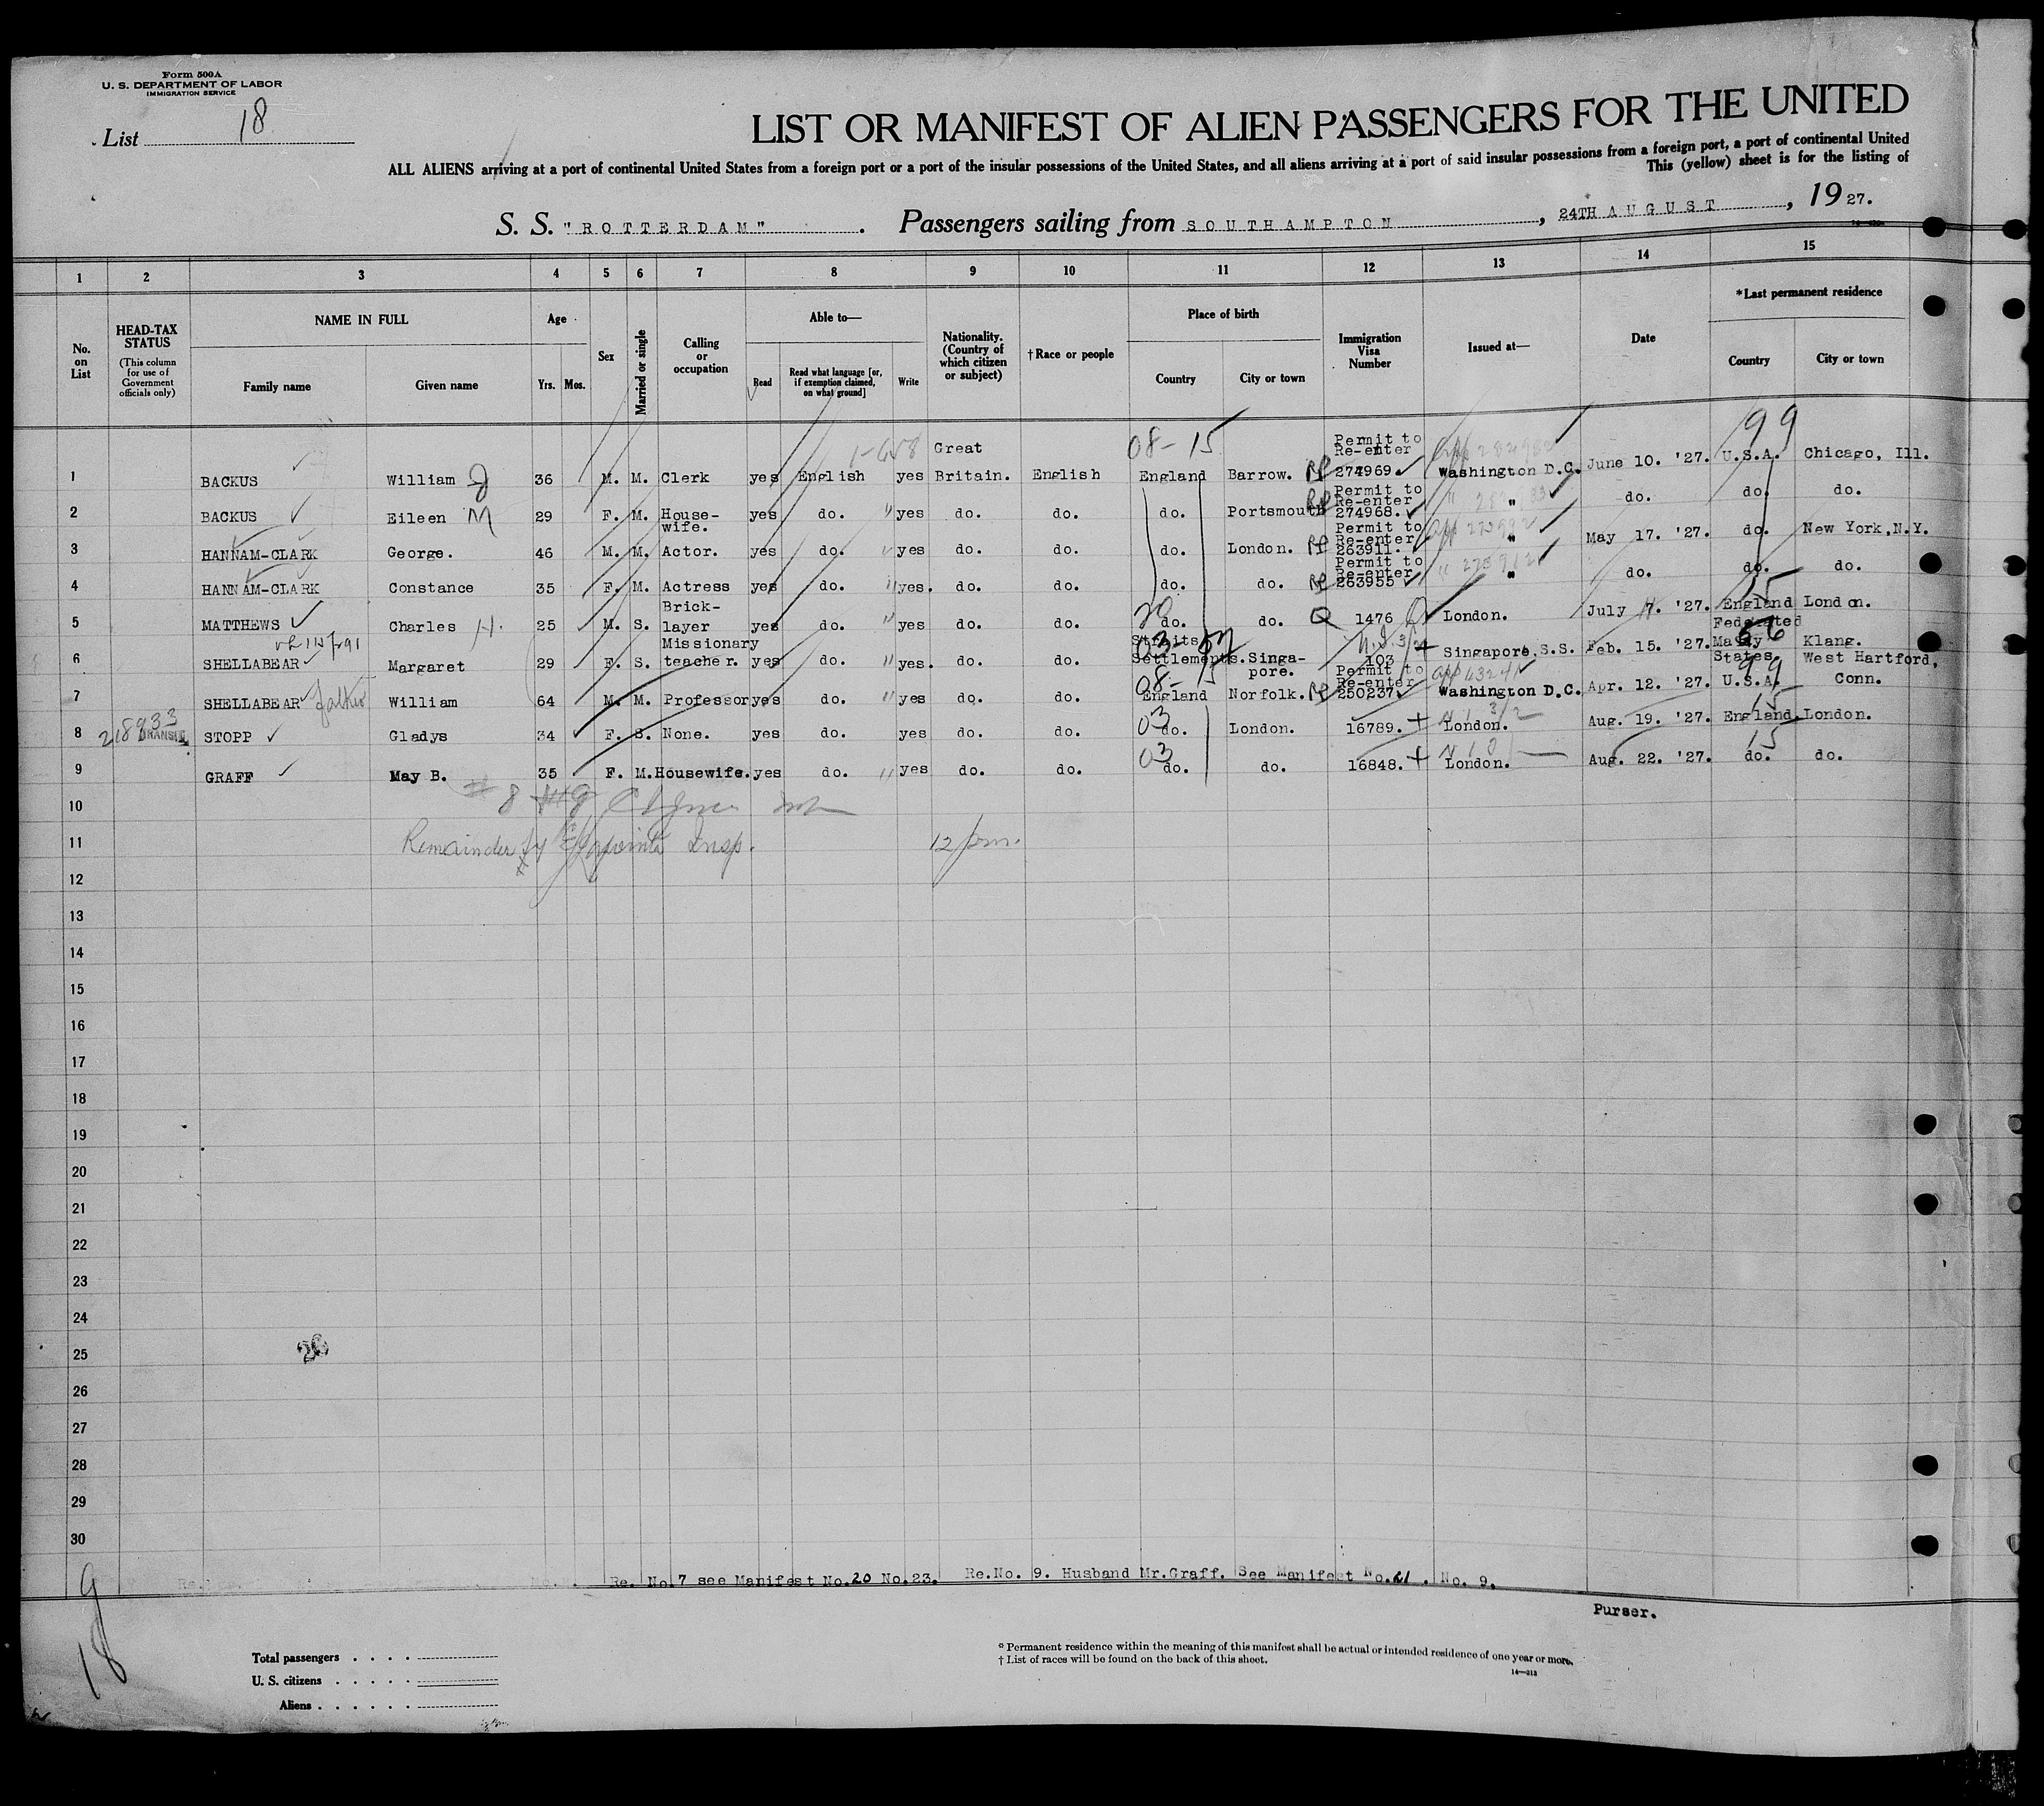 Form 500A
U. S. DEPARTMENT OF LABOR
IMMIGRATION SERVICE
List 18
LIST OR MANIFEST OF ALIEN PASSENGERS FOR THE UNITED
ALL ALIENS arriving at a port of continental United States from a foreign port or a port of the insular possessions of the United States, and all aliens arriving at a port of said insular possessions from a foreign port, a port of continental United
This (yellow) sheet is for the listing of
S. S. "ROTTERDAM" . Passengers sailing from SOUTHAMPTON , 24TH AUGUST , 19 27.
1 2 3 4 5 6 7 8 9 10 11 12 13 14 15
No. on List
HEAD-TAX STATUS
(This column for use of Government officials only)
NAME IN FULL
Family name Given name
Age
Yrs. Mos.
Sex
Married or single
Calling or occupation
Able to—
Read Read what language [or, if exemption claimed, on what ground] Write
Nationality. (Country of which citizen or subject)
†Race or people
Place of birth
Country City or town
Immigration Visa Number
Issued at—
Date
*Last permanent residence
Country City or town
1 BACKUS William J 36 M. M. Clerk yes English yes Great Britain. English 08-15 England Barrow. Permit to Re-enter 274969. Washington D.C. June 10. '27. 99 U.S.A. Chicago, Ill.
2 BACKUS Eileen M 29 F. M. House-wife. yes do. yes do. do. do. Portsmouth Permit to Re-enter 274968. " do. do. do.
3 HANNAM-CLARK George. 46 M. M. Actor. yes do. yes do. do. do. London. Permit to Re-enter 263911. " May 17. '27. do. New York,N.Y.
4 HANNAM-CLARK Constance 35 F. M. Actress yes do. yes. do. do. do. do. Permit to Re-enter 263955 " do. do. do.
5 MATTHEWS Charles H. 25 M. S. Brick-layer yes do. yes do. do. do. do. Q 1476 London. July 7. '27. 15 England London.
6 SHELLABEAR Margaret 29 F. S. Missionary teacher. yes do. yes. do. do. Straits Settlements. Singa-pore. 103 Singapore, S.S. Feb. 15. '27. Federated Malay States 56 Klang.
7 SHELLABEAR father William 64 M. M. Professor yes do. yes do. do. 08-15 England Norfolk. Permit to Re-enter 250237. Washington D.C. Apr. 12. '27. 99 U.S.A. West Hartford, Conn.
8 218933 TRANSIT STOPP Gladys 34 F. S. None. yes do. yes do. do. 03 do. London. 16789. London. Aug. 19. '27. 15 England. London.
9 GRAFF May B. 35 F. M. Housewife. yes do. yes do. do. 03 do. do. 16848. London. Aug. 22. '27. 15 do. do.
10
11 Remainder by Insp. 12 pm.
12
13
14
15
16
17
18
19
20
21
22
23
24
25
26
27
28
29
30
Re. No. 7 see Manifest No. 20 No. 23. Re. No. 9. Husband Mr. Graff. See Manifest No. 21 . No. 9.
Purser.
9
18
Total passengers
U. S. citizens
Aliens
* Permanent residence within the meaning of this manifest shall be actual or intended residence of one year or more.
† List of races will be found on the back of this sheet.
14—213